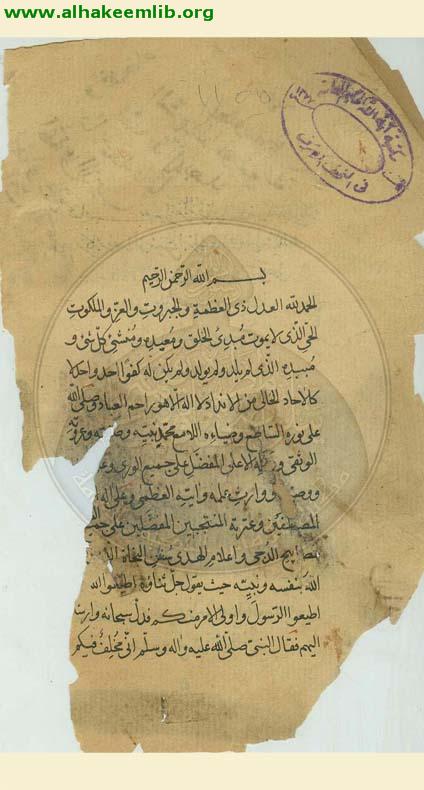 www.alhakeemlib.org
بسم الله الرحمن الرحيم
الحمد لله العدل ذى العظمة والجبروت والعز والملكوت
الحى الذى لا يموت مبدئ الخلق ومعيده ومنشئ كل شئ و
مبيده الذى لم يلد ولم يولد ولم يكن له كفوا احد واحد لا
كالاحاد الخالى من الانداد لا اله الا هو راحم العباد وصلى الله
على نوره الساطع وضياءه اللامع محمد نبيه وعروته
الوثقى الاعلى المفضل على جميع الورى وعلى
ووارث علمه وايته العظمى وعلى اله
المصطفين وعترته المنتجبين المفضلين على
مصابيح الدجى واعلام الهدى سفن النجاة
الله بنفسه ونبيه حيث يقول جل ثناؤه اطيعوا الله
اطيعوا الرسول واولى الامر منكم فدل سبحانه وارشد
اليهم فقال النبى صلى الله عليه واله وسلم انى مخلف فيكم